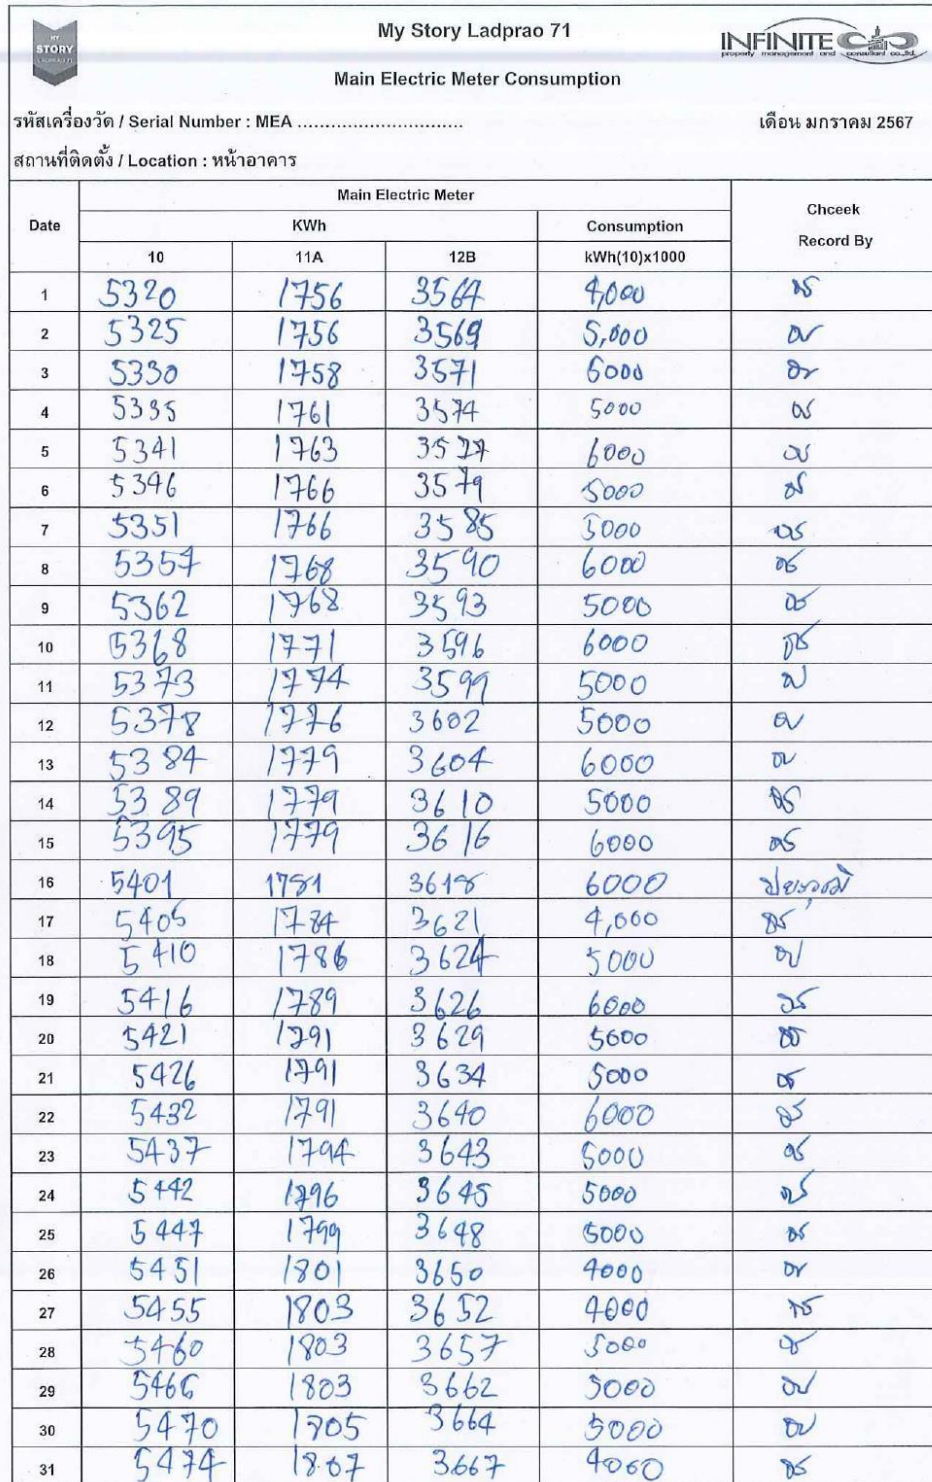 MY
STORY
LADPRAO 71
My Story Ladprao 71
INFINITE
property management and consultant co.,ltd.
Main Electric Meter Consumption
รหัสเครื่องวัด / Serial Number : MEA ..............................
เดือน มกราคม 2567
สถานที่ติดตั้ง / Location : หน้าอาคาร
Date Main Electric Meter Chceek Record By
KWh Consumption
10 11A 12B kWh(10)x1000
1 5320 1756 3564 4,000
2 5325 1756 3569 5,000
3 5330 1758 3571 5000
4 5335 1761 3574 5000
5 5341 1763 3577 6000
6 5346 1766 3579 5000
7 5351 1766 3585 5000
8 5357 1768 3590 6000
9 5362 1768 3593 5000
10 5368 1771 3596 6000
11 5373 1774 3599 5000
12 5378 1776 3602 5000
13 5384 1779 3604 6000
14 5389 1779 3610 5000
15 5395 1779 3616 6000
16 5401 1781 3618 6000
17 5405 1784 3621 4,000
18 5410 1786 3624 5000
19 5416 1789 3626 6000
20 5421 1791 3629 5000
21 5426 1791 3634 5000
22 5432 1791 3640 6000
23 5437 1794 3643 5000
24 5442 1796 3645 5000
25 5447 1799 3648 5000
26 5451 1801 3650 4000
27 5455 1803 3652 4000
28 5460 1803 3657 5000
29 5466 1803 3662 5000
30 5470 1805 3664 5000
31 5474 1807 3667 4000